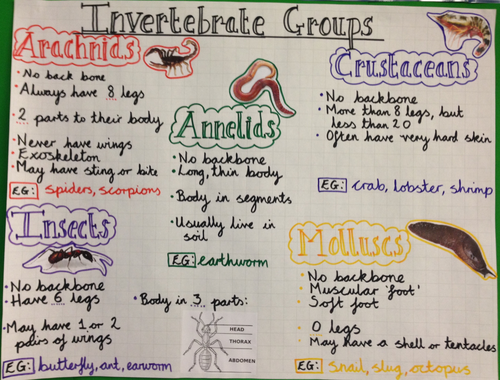 Invertebrate Groups
Arachnids
• No back bone
• Always have 8 legs
• 2 parts to their body
• Never have wings
• Exoskeleton
• May have sting or bite
EG: spiders, scorpions
Annelids
• No backbone
• Long, thin body
• Body in segments
• Usually live in
soil
EG: earthworm
Crustaceans
• No backbone
• More than 8 legs, but
less than 20
• Often have very hard skin
EG: crab, lobster, shrimp
Insects
• No backbone
• Have 6 legs
• May have 1 or 2
pairs of wings
• Body in 3 parts:
HEAD
THORAX
ABDOMEN
EG: butterfly, ant, earworm
Molluscs
• No backbone
• Muscular 'foot'
• Soft foot
• 0 legs
• May have a shell or tentacles
EG: snail, slug, octopus